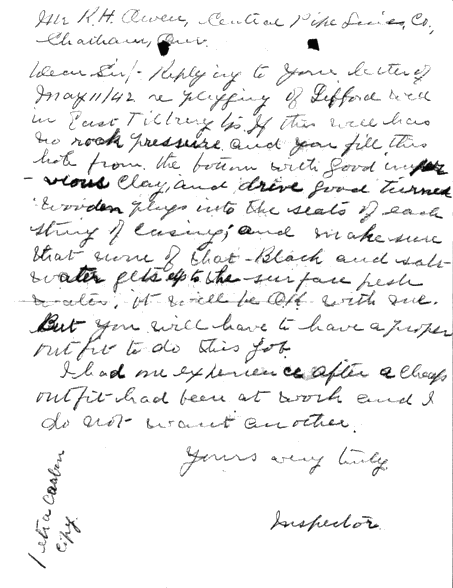 Mr K.H. Owen, Central Pipe Line Co,
Chatham, Ont.
Dear Sir/- Replying to your letter of
May 11/42 re plugging of Gifford well
in East Tilbury Tp. If this well has
no rock pressure and you fill this
hole from the bottom with good imper
-vious clay, and drive good turned
wooden plugs into the seats of each
string of casing; and make sure
that none of that Black and salt
water gets up to the surface fresh
water, it will be OK with me.
But you will have to have a proper
outfit to do this job.
I had one experience after a cheap
outfit had been at work and I
do not want another.
Yours very truly
Inspector
1 extra carbon
copy.